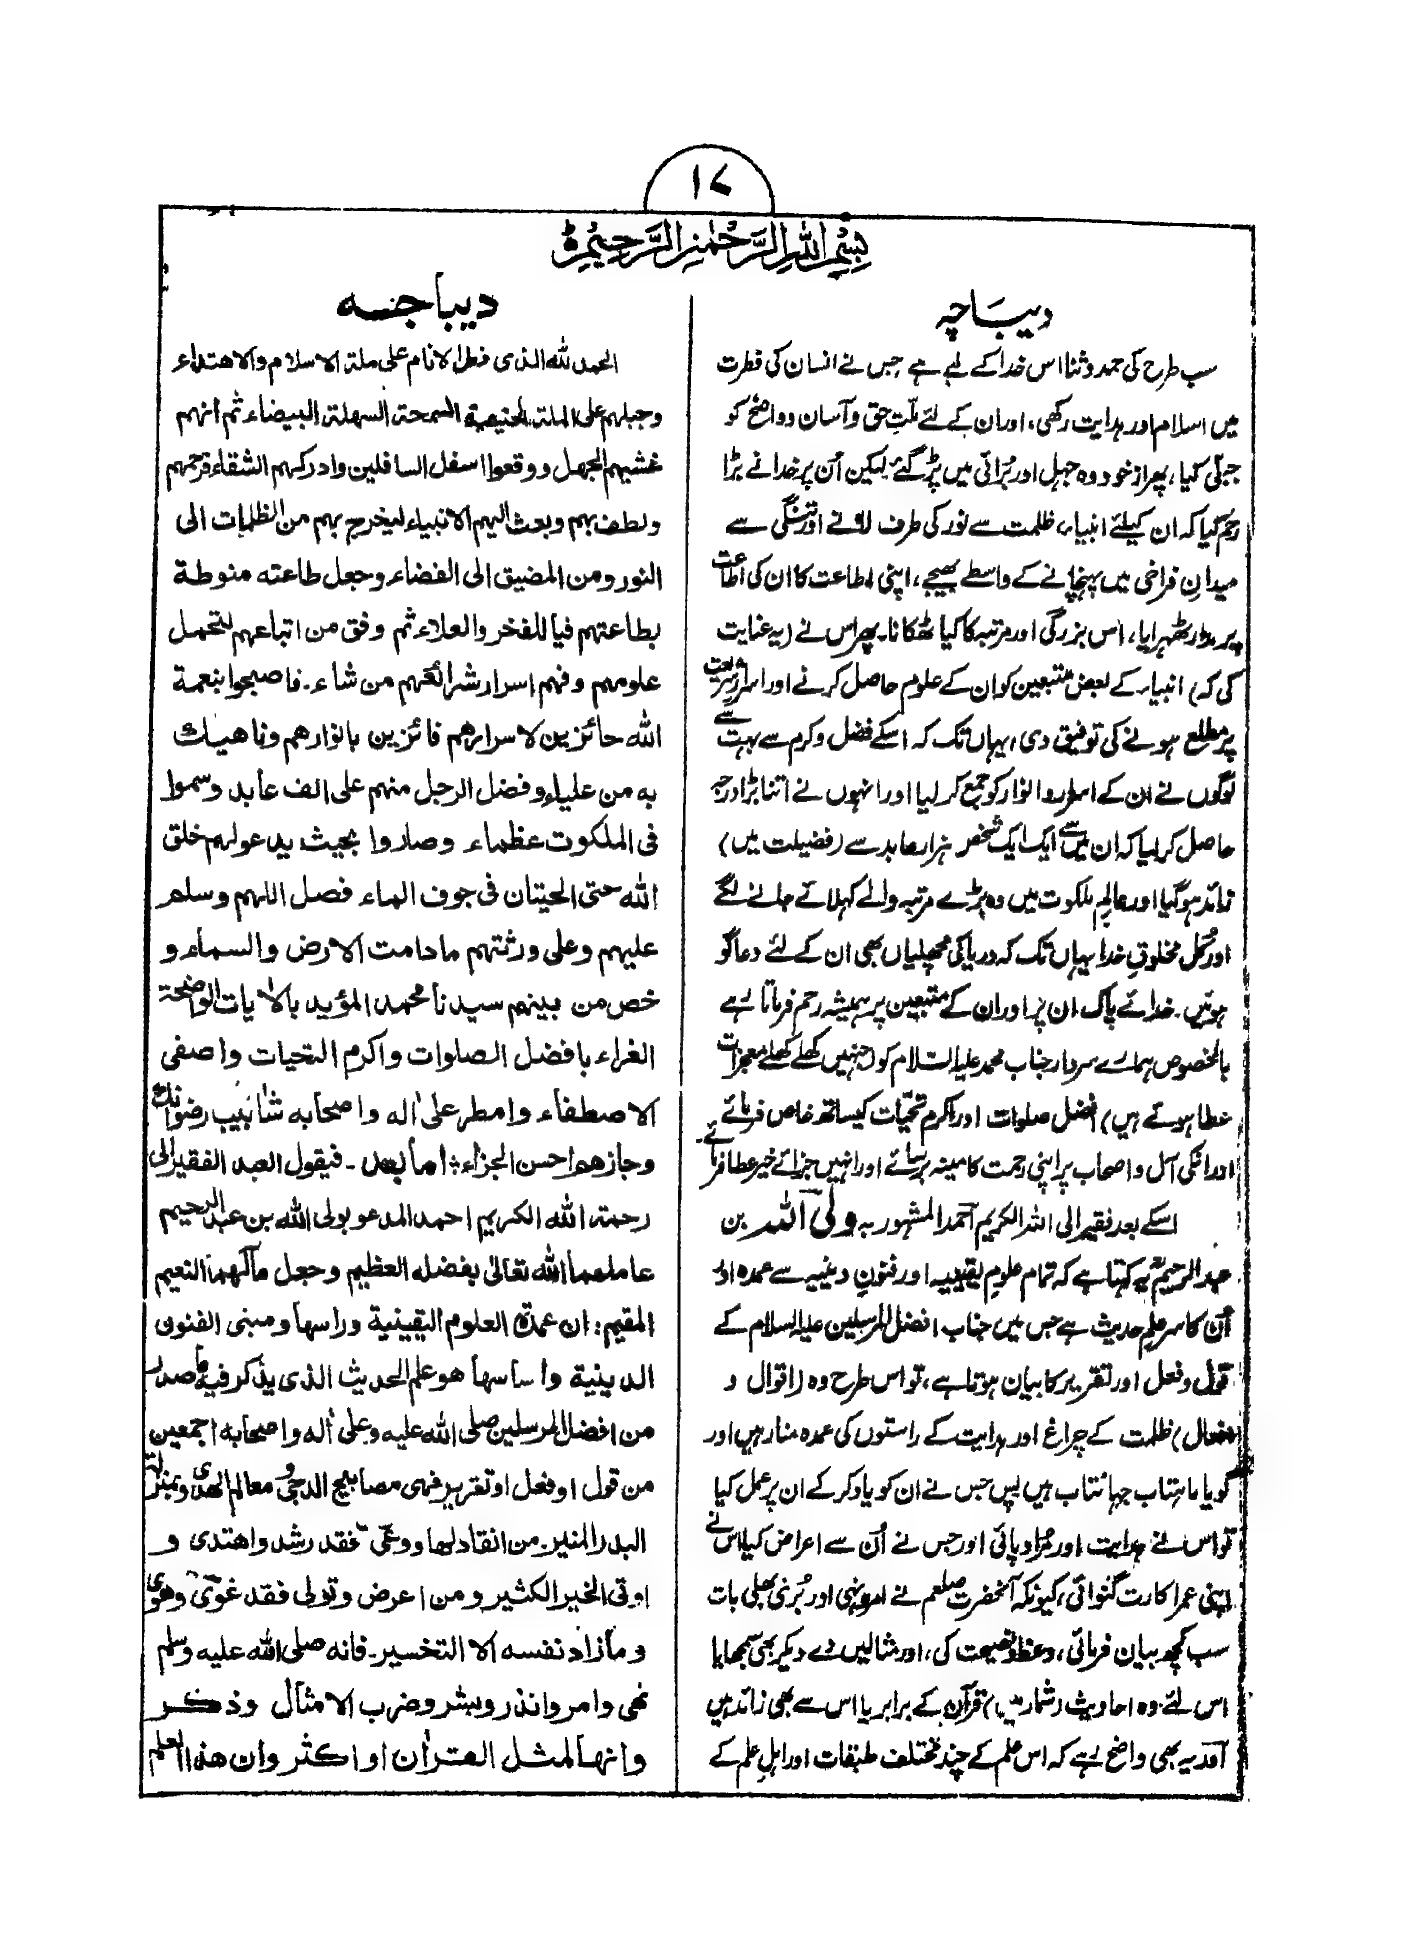 ١٧
بِسْمِ اللهِ الرَّحْمٰنِ الرَّحِيْمِ ط
دیبَاچہ
سب طرح کی حمد و ثنا اس خدا کے لیے ہے جس نے انسان کی فطرت
میں اسلام اور ہدایت رکھی، اور ان کے لئے ملّتِ حق و آسان و واضح کو
جبلّی کیا، پھر از خود وہ جہل اور بُرائی میں پڑ گئے لیکن اُن پر خدا نے بڑا
رحم کیا کہ ان کیلئے انبیاء، ظلمت سے نور کی طرف لانے اور تنگی سے
میدانِ فراخی میں پہنچانے کے واسطے بھیجے، اپنی اطاعت کا ان کی اطاعت
پر مدار ٹھہرایا، اس بزرگی اور مرتبہ کا کیا ٹھکانا۔ پھر اس نے (یہ عنایت
کی کہ) انبیاء کے بعض متبعین کو ان کے علوم حاصل کرنے اور اسرارِ شریعت
پر مطلع ہونے کی توفیق دی، یہاں تک کہ اسکے فضل و کرم سے بہت سے
لوگوں نے ان کے اسرار و انوار کو جمع کر لیا اور انہوں نے اتنا بڑا درجہ
حاصل کر لیا کہ ان میں سے ایک ایک شخص ہزار عابد سے (فضیلت میں)
زائد ہو گیا اور عالمِ ملکوت میں وہ بڑے مرتبہ والے کہلائے جانے لگے
اور کُل مخلوقِ خدا یہاں تک کہ دریا کی مچھلیاں بھی ان کے لئے دعا گو
ہوئیں۔ خدائے پاک ان پر اور ان کے متبعین پر ہمیشہ رحم فرماتا رہے
بالخصوص ہمارے سردار جناب محمد علیہ السّلام کو (جنہیں کھلے کھلے معجزات
عطا ہوئے ہیں) افضل صلوات اور اکرم تحیّات کیساتھ خاص فرمائے
اور انکی آل و اصحاب پر اپنی رحمت کا مینہ برسائے اور انہیں جزائے خیر عطا فرمائے۔
اسکے بعد فقیر الی اللہ الکریم احمد المشہور بہ ولی اللہ بن
عبد الرحیم یہ کہتا ہے کہ تمام علومِ یقینیہ اور فنونِ دینیہ سے عمدہ اور
اُن کا سر علمِ حدیث ہے جس میں جناب افضل المرسلین علیہ السلام کے
قول و فعل اور تقریر کا بیان ہوتا ہے، تو اس طرح وہ (اقوال و
افعال) ظلمت کے چراغ اور ہدایت کے راستوں کی عمدہ منار ہیں اور
گویا ماہتاب جہانتاب ہیں پس جس نے ان کو یاد کر کے ان پر عمل کیا
تو اس نے ہدایت اور مُراد پائی اور جس نے اُن سے اعراض کیا اس نے
اپنی عمر اکارت گنوائی، کیونکہ آنحضرت صلعم نے امر و نہی اور بُرئی بھلی بات
سب کچھ بیان فرمائی، وعظ و نصیحت کی، اور مثالیں دے دیکر بھی سمجھایا
اس لئے وہ احادیث (شمار میں) قرآن کے برابر یا اس سے بھی زائد ہیں
اور یہ بھی واضح رہے کہ اس علم کے چند مختلف طبقات اور اہلِ علم کے
دیباجة
الحمد لله الذى فطر الانام على ملة الاسلام والاهتداء
وجبلهم على الملة الحنيفية السمحة السهلة البيضاء ثم انهم
غشيهم الجهل ووقعوا اسفل السافلين وادركهم الشقاء فرحمهم
ولطف بهم وبعث اليهم الانبياء ليخرج بهم من الظلمات الى
النور ومن المضيق الى الفضاء وجعل طاعته منوطة
بطاعتهم فيا للفخر والعلاء ثم وفق من اتباعهم لتحمل
علومهم وفهم اسرار شرائعهم من شاء۔ فاصبحوا بنعمة
الله حائزين لاسرارهم فائزين بانوارهم وناهيك
به من علياء وفضل الرجل منهم على الف عابد وسموا
فى الملكوت عظماء وصاروا بحيث يدعو لهم خلق
الله حتى الحيتان فى جوف الماء فصل اللهم وسلم
عليهم وعلى ورثتهم مادامت الارض والسماء و
خص من بينهم سيدنا محمد المؤيد بالايات الواضحة
الغراء بافضل الصلوات واكرم التحيات واصفى
الاصطفاء وامطر على اله واصحابه شآبيب رضوانك
وجازهم احسن الجزاء؛ اما بعد۔ فيقول العبد الفقير الى
رحمة الله الكريم احمد المدعو بولى الله بن عبد الرحيم
عاملهما الله تعالىٰ بفضله العظيم وجعل مآلهما النعيم
المقيم: ان عمدة العلوم اليقينية وراسها ومبنى الفنون
الدينية واساسها هو علم الحديث الذى يذكر فيه ما صدر
من افضل المرسلين صلى الله عليه وعلى اله واصحابه اجمعين
من قول او فعل او تقرير فهى مصابيح الدجى و معالم الهدى وبمنزلة
البدر المنير۔ من انقاد لها ووعى فقد رشد واهتدى و
اوتى الخير الكثير ومن اعرض وتولى فقد غوى وهوى
وما زاد نفسه الا التخسير۔ فانه صلى الله عليه وسلم
نهى وامر وانذر وبشر وضرب الامثال وذكر
وانها لمثل القرآن او اكثر وان هذا العلم